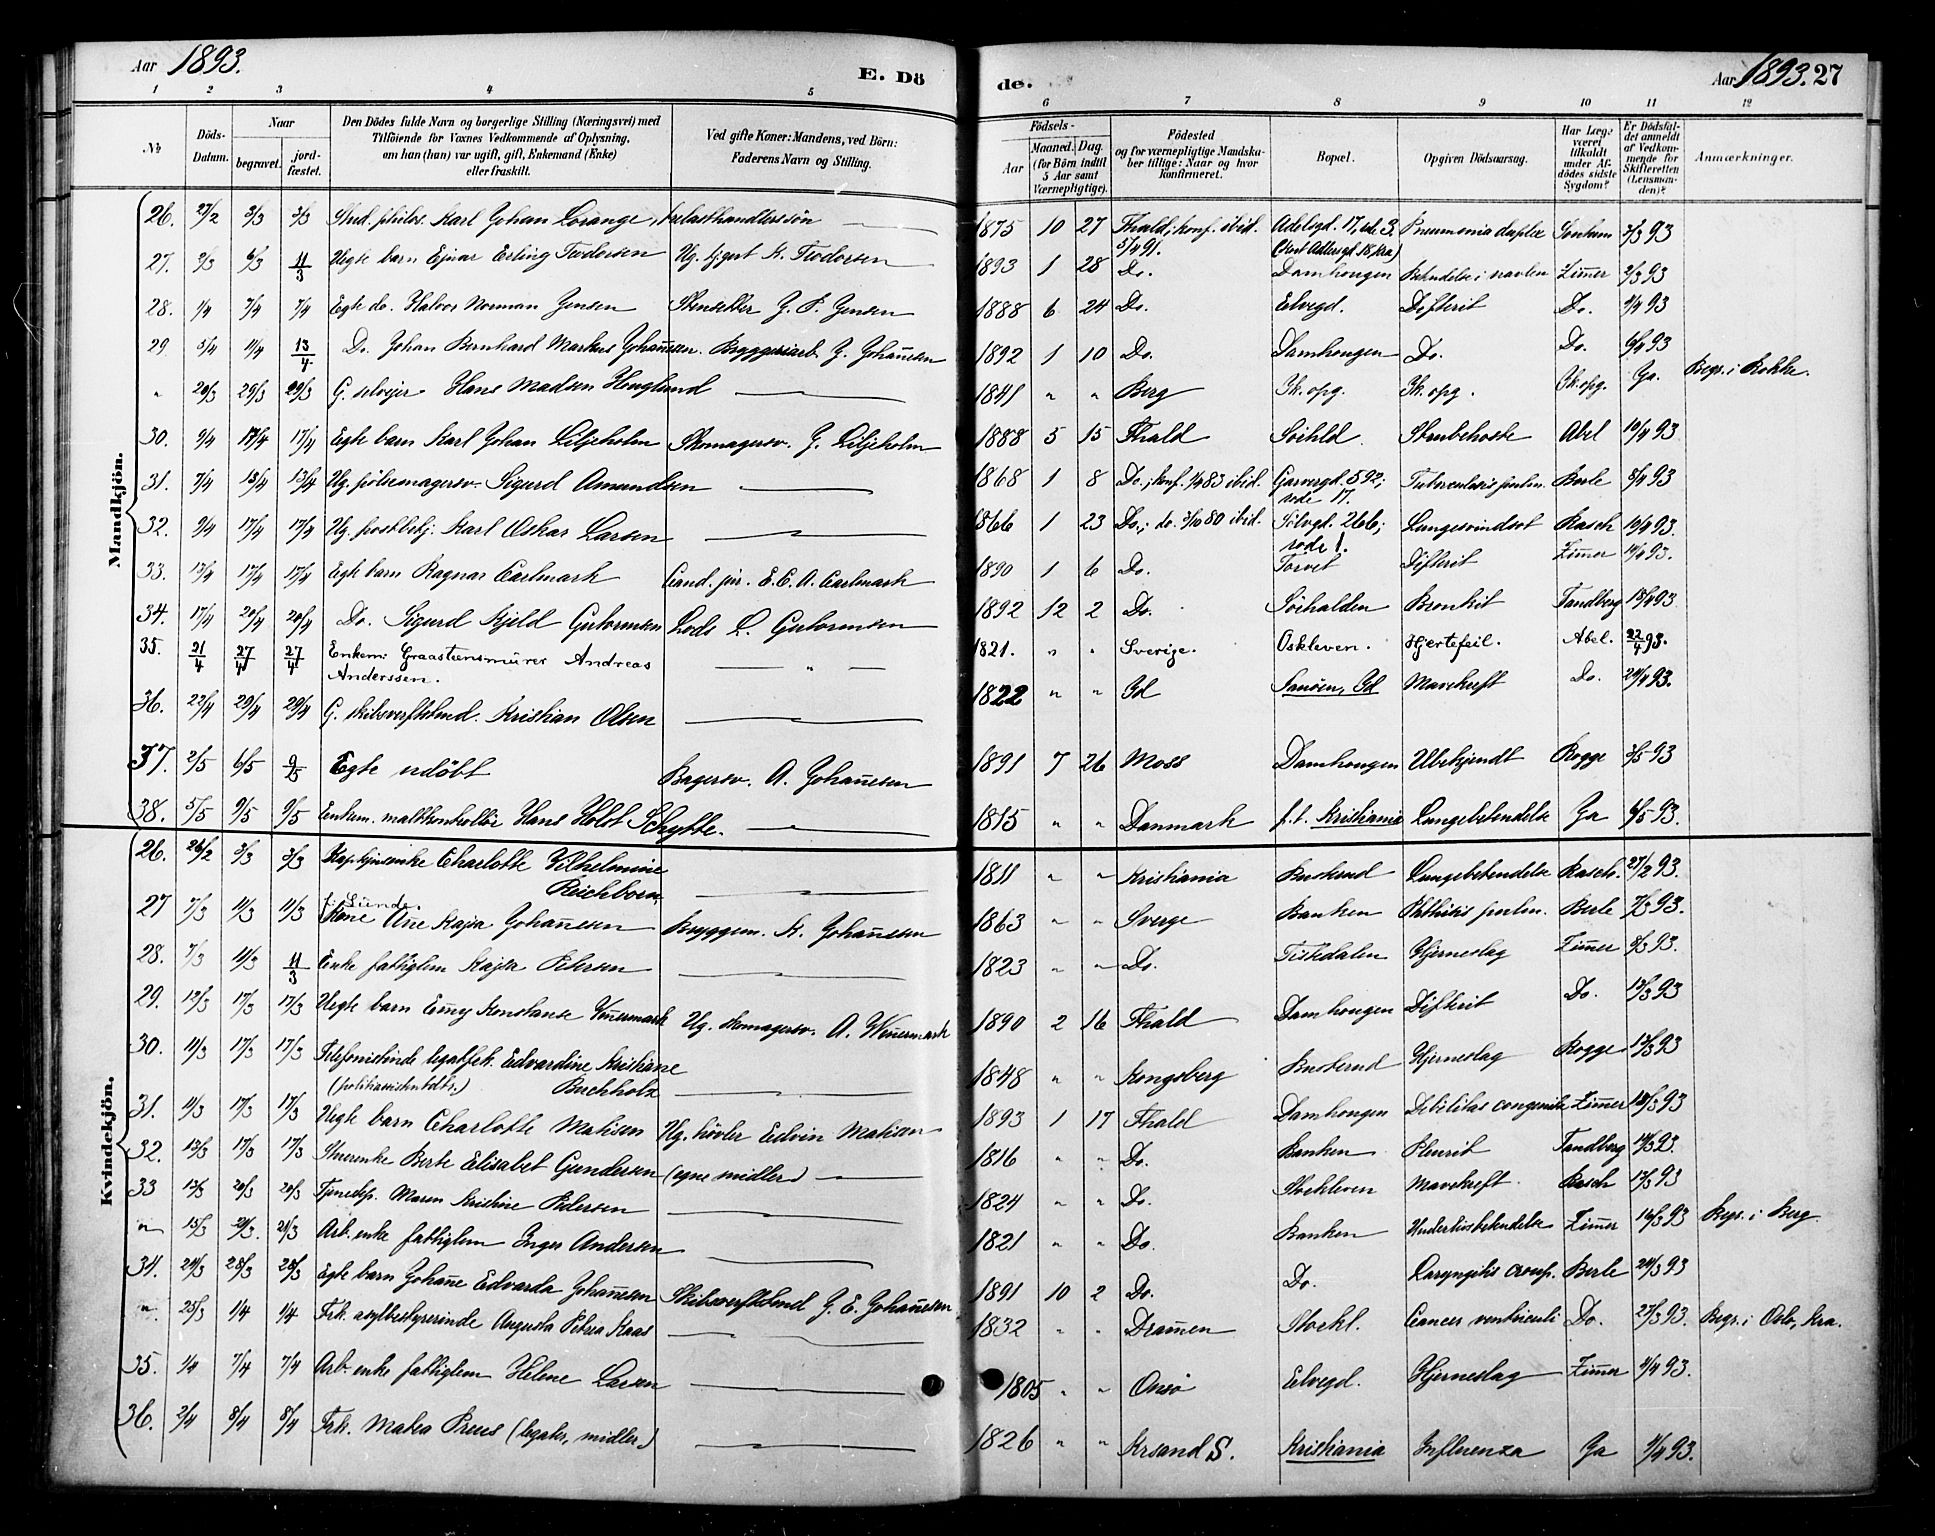 Aar 1893.
E. Dö
de.
Aar 1893. 27
1 2 3 4 5 6 7 8 9 10 11 12
No
Döds-Datum.
Naar
begravet.
jord-fæstet.
Den Dödes fulde Navn og borgerlige Stilling (Næringsvei) med
Tilföiende for Voxnes Vedkommende af Oplysning,
om han (hun) var ugift, gift, Enkemand (Enke)
eller fraskilt.
Ved gifte Koner: Mandens, ved Börn:
Faderens Navn og Stilling.
Födsels-
Aar
Maaned. Dag.
(for Börn indtil
5 Aar samt
Værnepligtige).
Födested
og for værnepligtige Mandska-
ber tillige: Naar og hvor
konfirmeret.
Bopæl.
Opgiven Dödsaarsag.
Har Læge
været
tilkaldt
under Af-
dödes sidste
Sygdom?
Er Dödsfal-
det anmeldt
af Vedkom-
mende for
Skifteretten
(Lensman-
den)?
Anmærkninger.
Mandkjön.
26. 27/2 3/3 3/3 Stud. philos. Karl Johan Lorange, trelasthandlerssön 1875 10 27 Fhald; konf. ibid. 5/4 91. Adelsgd. 17, rode 3. Pneumonia duplex 3/3 93
27. 2/3 6/3 11/3 Uegte barn Ejnar Erling Teodorsen 1893 1 28 Do. Damhougen Betændelse i navlen Zimer 2/3 93
28. 1/4 7/4 7/4 Egte do. Halvor Norman Jensen Stensetter J. P. Jensen 1888 6 24 Do. Elvegd. Difterit Do. 4/4 93
29 5/4 11/4 13/4 Do. Johan Bernhard Markus Johansen. Bryggeriarb. J. Johansen 1892 1 10 Do. Damhougen Do. Do. 6/4 93
" 20/3 29/3 29/3 G. selvejer Hans Madsen Houglund 1841 " " Berg Ik. opg. Ik. opg. Ik. opg. Ja. Begr. i Rokke.
30. 9/4 17/4 17/4 Egte barn Karl Johan Liljeholm Skomagersv. J. Liljeholm 1888 5 15 Fhald Söihld. Strubehoste Abel 10/4 93
31. 7/4 13/4 13/4 Ug. pölsemagersv. Sigurd Amundsen 1868 1 8 Do.; konf. 1/4 83 ibid. Garvergd. 592; rode 17. Tuberculosis pulm. Berle 8/4 93
32. 9/4 17/4 17/4 Ug. postbetj. Karl Oskar Larsen 1866 1 23 Do.; do. 3/10 80 ibid. Sölvgd. 266; rode 1. Lungesvindsot Rasch 10/4 93.
33. 13/4 17/4 17/4 Egte barn Ragnar Carlmark Cand. jur. E. C. A. Carlmark 1890 1 6 Do. Torvet Difterit Zimer 14/4 93.
34. 17/4 20/4 20/4 Do. Sigurd Kjeld Gutormsen Lods L. Gutormsen 1892 12 2 Do. Söihalden Bronkit Tandberg 18/4 93
35. 21/4 27/4 27/4 Enkem: Graastensmürer Andreas Anderssen. " 1821. " " Sverige. Oskleven. Hjertefeil. Abel. 22/4 93.
36. 22/4 29/4 29/4 G. skibsverftstmd. Kristian Olsen 1822 " " Id Sauöen, Id Mavekreft Do. 24/4 93.
37. 2/5 6/5 9/5 Egte udöbt Bagersv. A. Johansen 1891 7 26 Moss Damhougen Ubekjendt Rogge 3/5 93
38. 5/5 9/5 9/5 Enkem. maltkontrollör Hans Holst Schytte. 1815 " " Danmark f. t. Kristiania Lungebetendelse Ja 6/5 93.
Kvindekjön.
26. 26/2 3/3 3/3 Kapteinsenke Charlotte Vilhelmine Reichborn 1811 " " Kristiania Buskerud Lungebetendelse Rasch. 27/2 93.
27 7/3 11/3 11/3 f: Lunde. Kone Ane Kajsa Johansen Bryggem. K. Johansen 1863 " " Sverge Banken Phthisis pulm. Berle 7/3 93.
28. 7/3 11/3 11/3 Enke fattiglem Kajsa Petersen 1823 " " Do. Tistedalen Hjerneslag Zimer 8/3 93.
29. 12/3 17/3 17/3 Uegte barn Emy Konstanse Venermark Ug. skomagersv. A. Wenermark 1890 2 16 Fhald Damhougen Difterit Do. 13/3 93
30. 11/3 17/3 17/3 Telefonistinde legatfrk. Edvardine Kristiane (politiassistentdtr.) Buchholz 1848 " " Kongsberg Buskerud Hjerneslag Rogge 13/3 93
31. 11/3 17/3 17/3 Uegte barn Charlotte Matisen Ug. hövler Edvin Matisen 1893 1 17 Fhald Damhougen Debilitas congenita Zimer 13/3 93
32. 13/3 17/3 17/3 Berte Elisabet Gundersen (egne midler) 1816 " " Do. Banken Pleurit Tandberg 14/3 93.
33 12/3 20/3 20/3 Tjenestep. Maren Kristine Pedersen 1824 " " Do. Stokleven Mavekreft Rasch 13/3 93
" 15/3 21/3. 21/3 Arb. enke fattiglem Inger Andersen 1821 " " Do. Banken Underlivsbetendelse Zimer 16/3 93 Begr. i Berg.
34. 24/3 28/3 28/3 Egte barn Johane Edvarda Johansen Skibsverftstmd J. E. Johansen 1891 10 2 Do. Do. Laryngitis croup. Berle 24/3 93
" 25/3 1/4 1/4 Frk. asylbestyrerinde Augusta Petrea Kaas 1832 " " Dramen Stokl. Cancer ventriculi Do. 27/3 93. Begr. i Oslo, Kra.
35. 1/4 7/4 7/4 Arb. enke fattiglem Helene Larsen 1805 " " Onsö Elvegd. Hjerneslag Zimer 4/4 93.
36. 2/4 8/4 8/4 Frk. Matea Preus (legater, midler) 1826 " " Krsand S. Kristiania Influenza Ja 7/4 93.